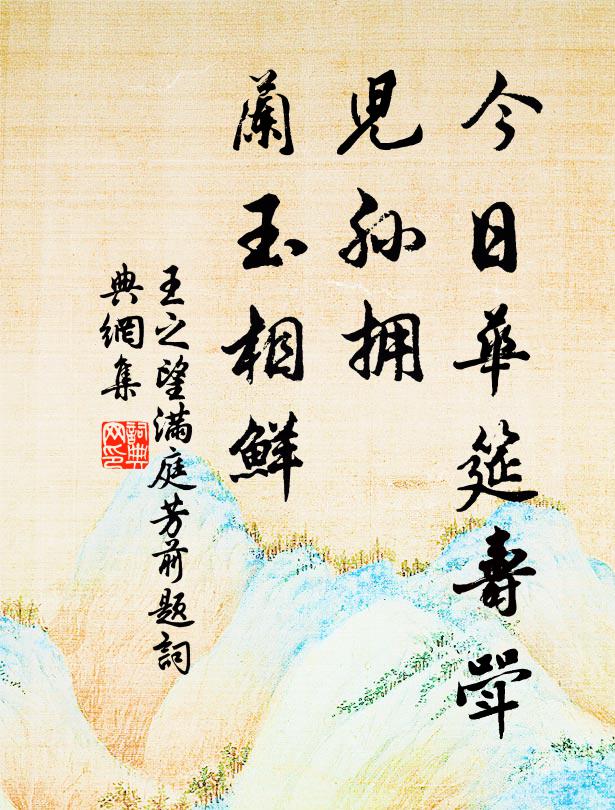 今日華筵壽斝
兒孫擁
蘭玉相鮮
王之望滿庭芳前題詞
典網集
詞典網印